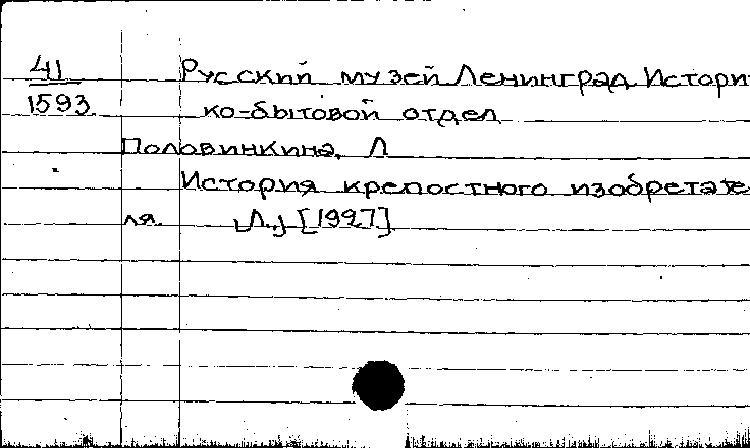 41
1593
Русский музей Ленинград Истори
ко-бытовой отдел
Половинкина, Л
История крепостного изобретате
ля. Л., [1927]